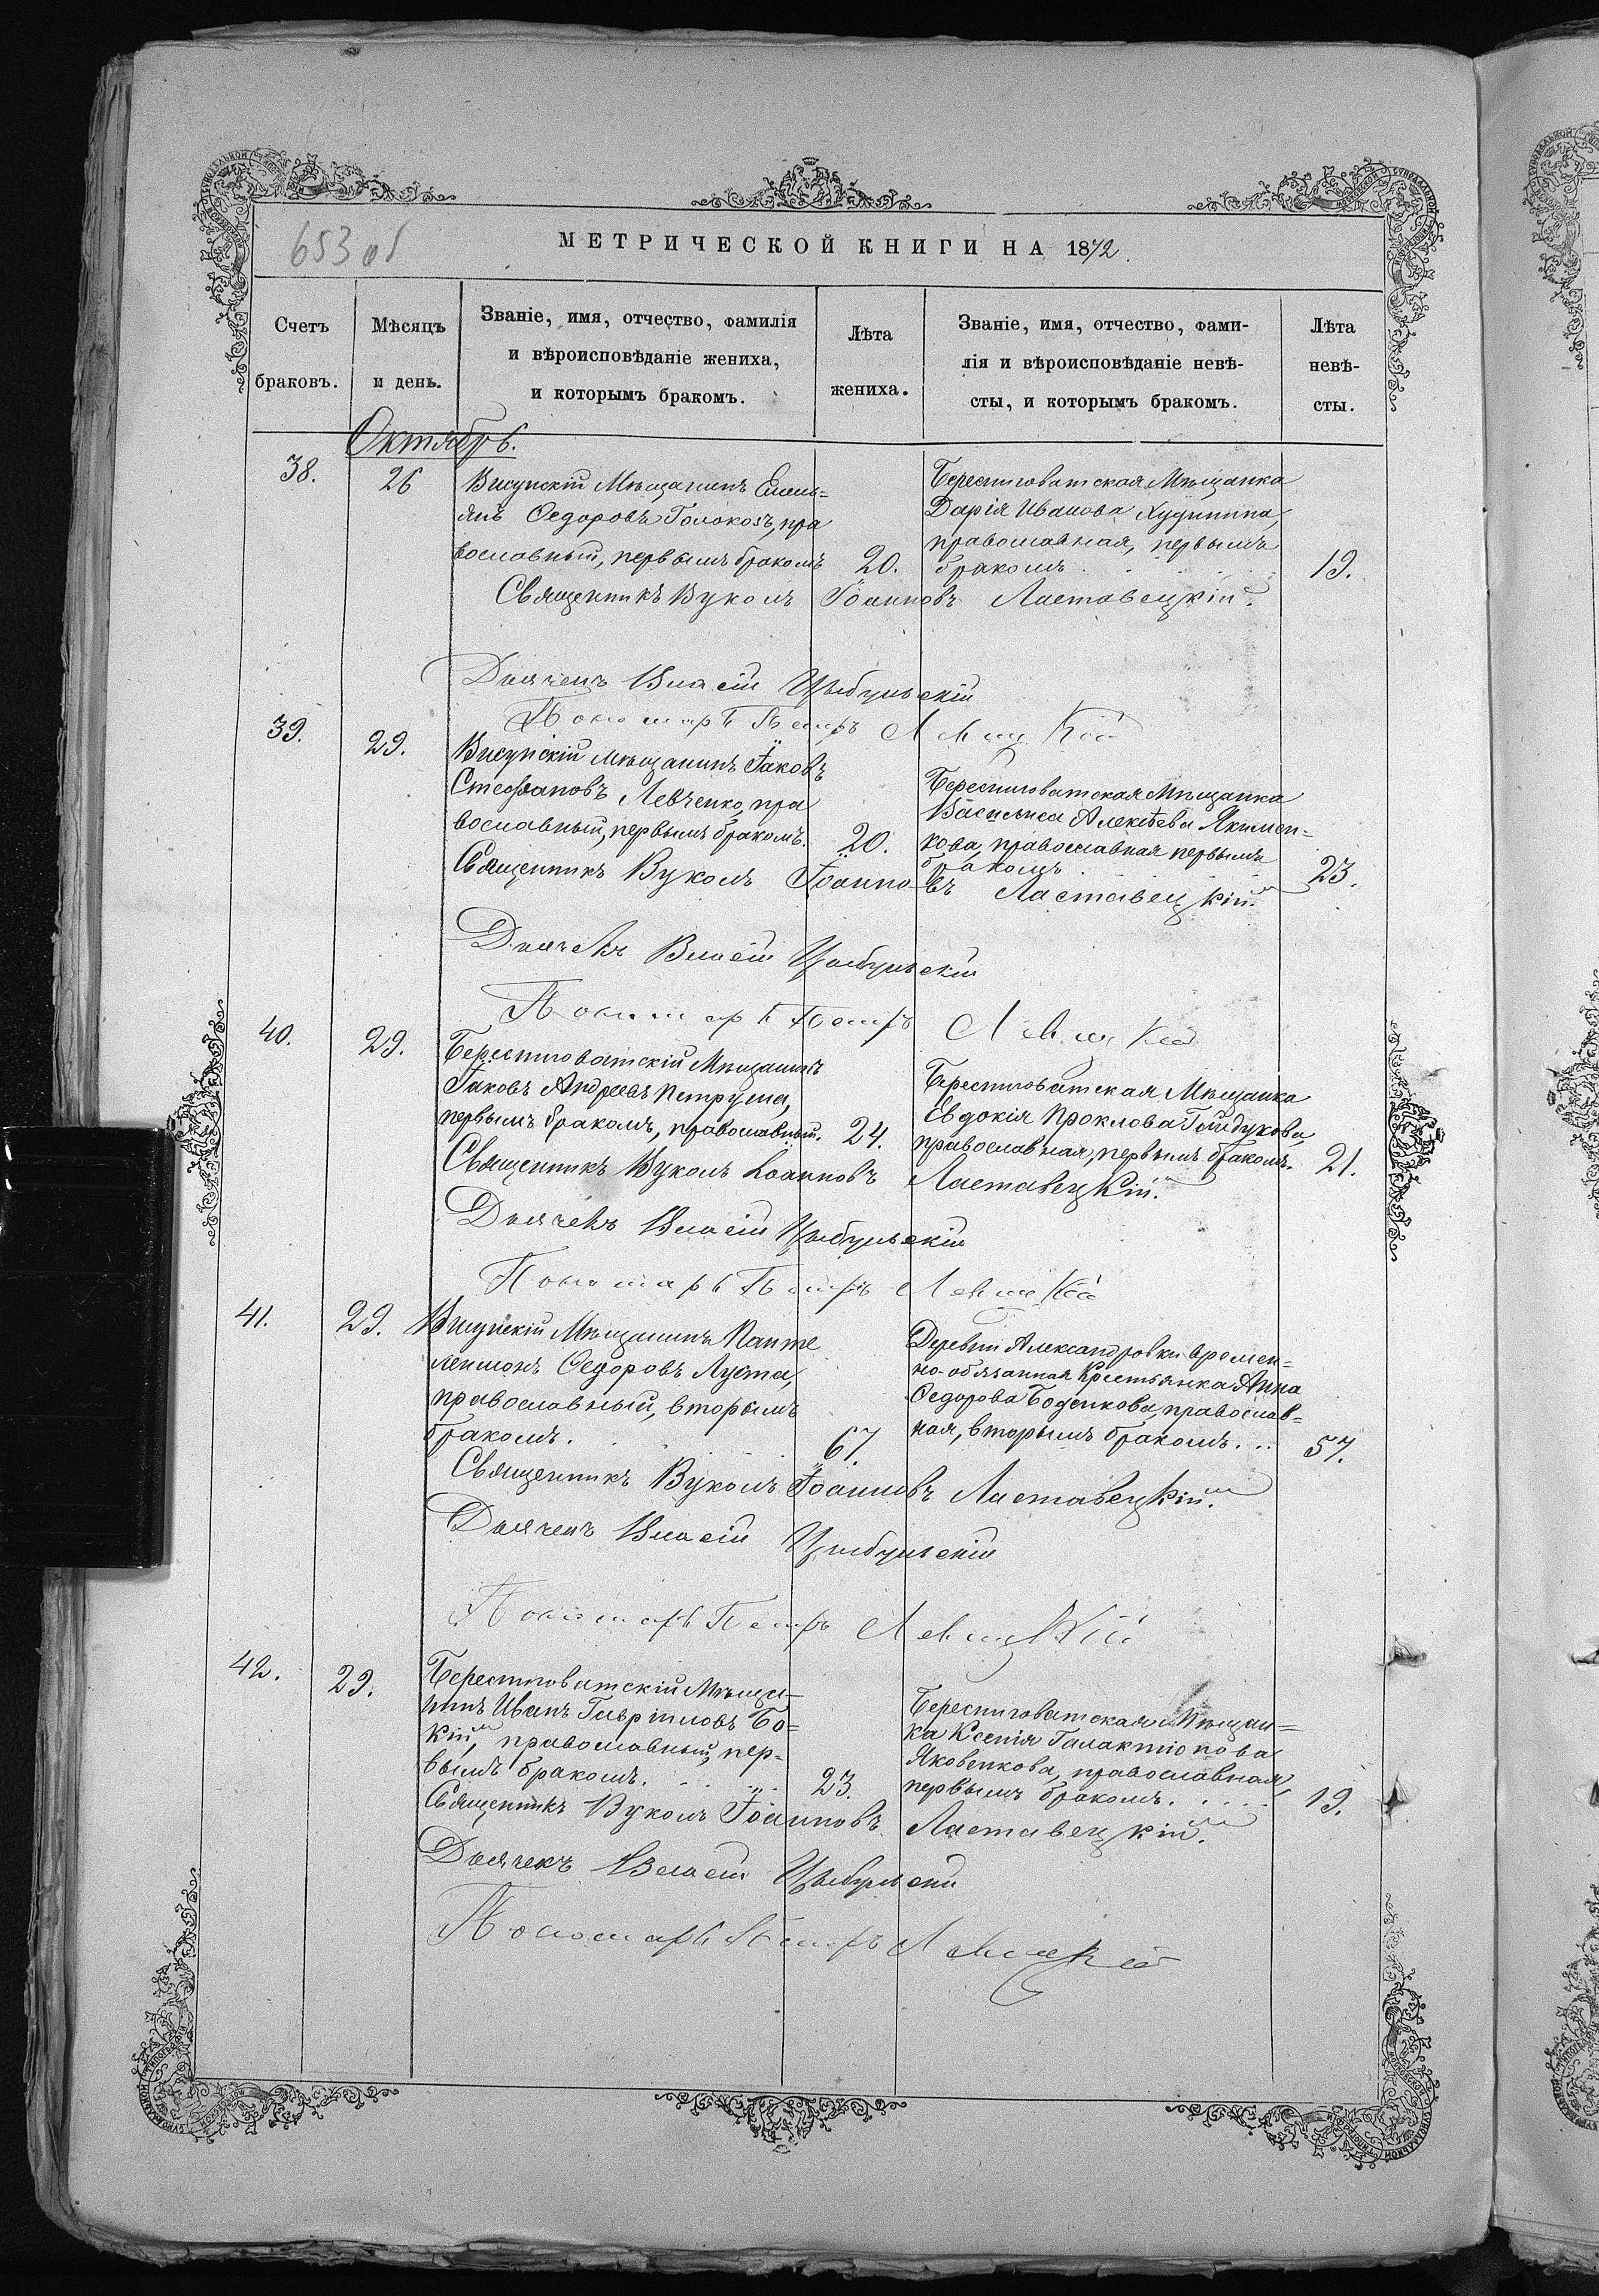 653 об
МЕТРИЧЕСКОЙ КНИГИ НА 1872.
Счетъ браковъ.
Мѣсяцъ и день.
Званіе, имя, отчество, фамилія
и вѣроисповѣданіе жениха,
и которымъ бракомъ.
Лѣта жениха.
Званіе, имя, отчество, фами-
лія и вѣроисповѣданіе невѣ-
сты, и которымъ бракомъ.
Лѣта невѣ-сты.
Октябрь.
38.
26
Висунскій Мѣщанинъ Емель=
янъ Ѳедоровъ Голокозъ, пра
вославный, первымъ бракомъ
20.
Берестговатская Мѣщанка
Дарія Иванова
православная, первымъ
бракомъ
19.
Священникъ Вуколъ Іоанновъ Ластавецкій.
Дьячекъ Власій Цыбульскій
Пономарь Петръ Левицкій
39.
29.
Висунскій мѣщанинъ Іаковъ
Стефановъ Левченко, пра
вославный, первымъ бракомъ.
20.
Берестговатская Мѣщанка
Васильиса Алексѣева Якимен-
кова, православная первымъ
бракомъ
23.
Священникъ Вуколъ Іоанновъ Ластавецкій.
Дьячекъ Власій Цыбульскій
Пономарь Петръ Левицкій
40.
29.
Берестговатскій Мѣщанинъ
Іаковъ Андреевъ Петруша,
первымъ бракомъ, православный.
24.
Берестговатская Мѣщанка
Евдокія Проклова Гайдукова
православная, первымъ бракомъ.
21.
Священникъ Вуколъ Іоанновъ Ластавецкій.
Дьячекъ Власій Цыбульскій
Пономарь Петръ Левицкій
41.
29.
Висунскій Мѣщанинъ Панте
леимонъ Ѳедоровъ Луста,
православный, вторымъ
бракомъ.
67.
Деревни Александровки времен=
но-обязанная Крестьянка Анна
Ѳедорова Боденкова, православ=
ная, вторымъ бракомъ...
57.
Священникъ Вуколъ Іоанновъ Ластавецкій.
Дьячекъ Власій Цыбульскій
Пономарь Петръ Левицкій
42.
29.
Берестговатскій Мѣща-
нинъ Иванъ Гавріиловъ Бо=
кій, православный, пер-
вымъ бракомъ.
23.
Берестговатская Мѣщан=
ка Ксенія Галактіонова
Яковенкова, православная,
первымъ бракомъ.
19.
Священникъ Вуколъ Іоанновъ Ластавецкій.
Дьячекъ Власій Цыбульскій
Пономарь Петръ Левицкій